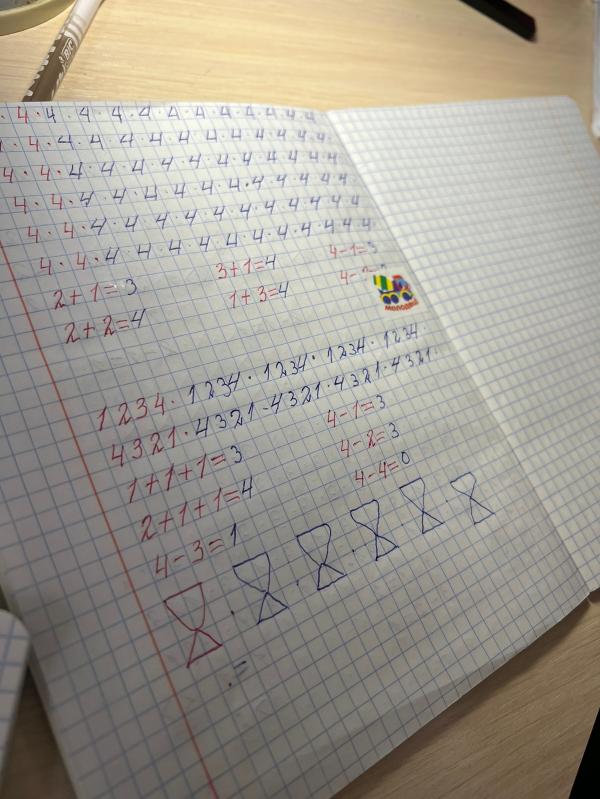 BIC
4 · 4 · 4 · 4 · 4 · 4 · 4 · 4 · 4 · 4 · 4 · 4
4 · 4 · 4 · 4 · 4 · 4 · 4 · 4 · 4 · 4 · 4 · 4
4 · 4 · 4 · 4 · 4 · 4 · 4 · 4 · 4 · 4 · 4 · 4
4 · 4 · 4 · 4 · 4 · 4 · 4 · 4 · 4 · 4 · 4 · 4
4 · 4 · 4 · 4 · 4 · 4 · 4 · 4 · 4 · 4 · 4
4 · 4 · 4 · 4 · 4 · 4 · 4 · 4 · 4 · 4 · 4 · 4
2+1=3 3+1=4 4-1=3
2+2=4 1+3=4 4-
молодец
1234 · 1234 · 1234 · 1234 · 1234
4321 · 4321 · 4321 · 4321 · 4321
1+1+1=3 4-1=3
2+1+1=4 4-2=3
4-3=1 4-4=0